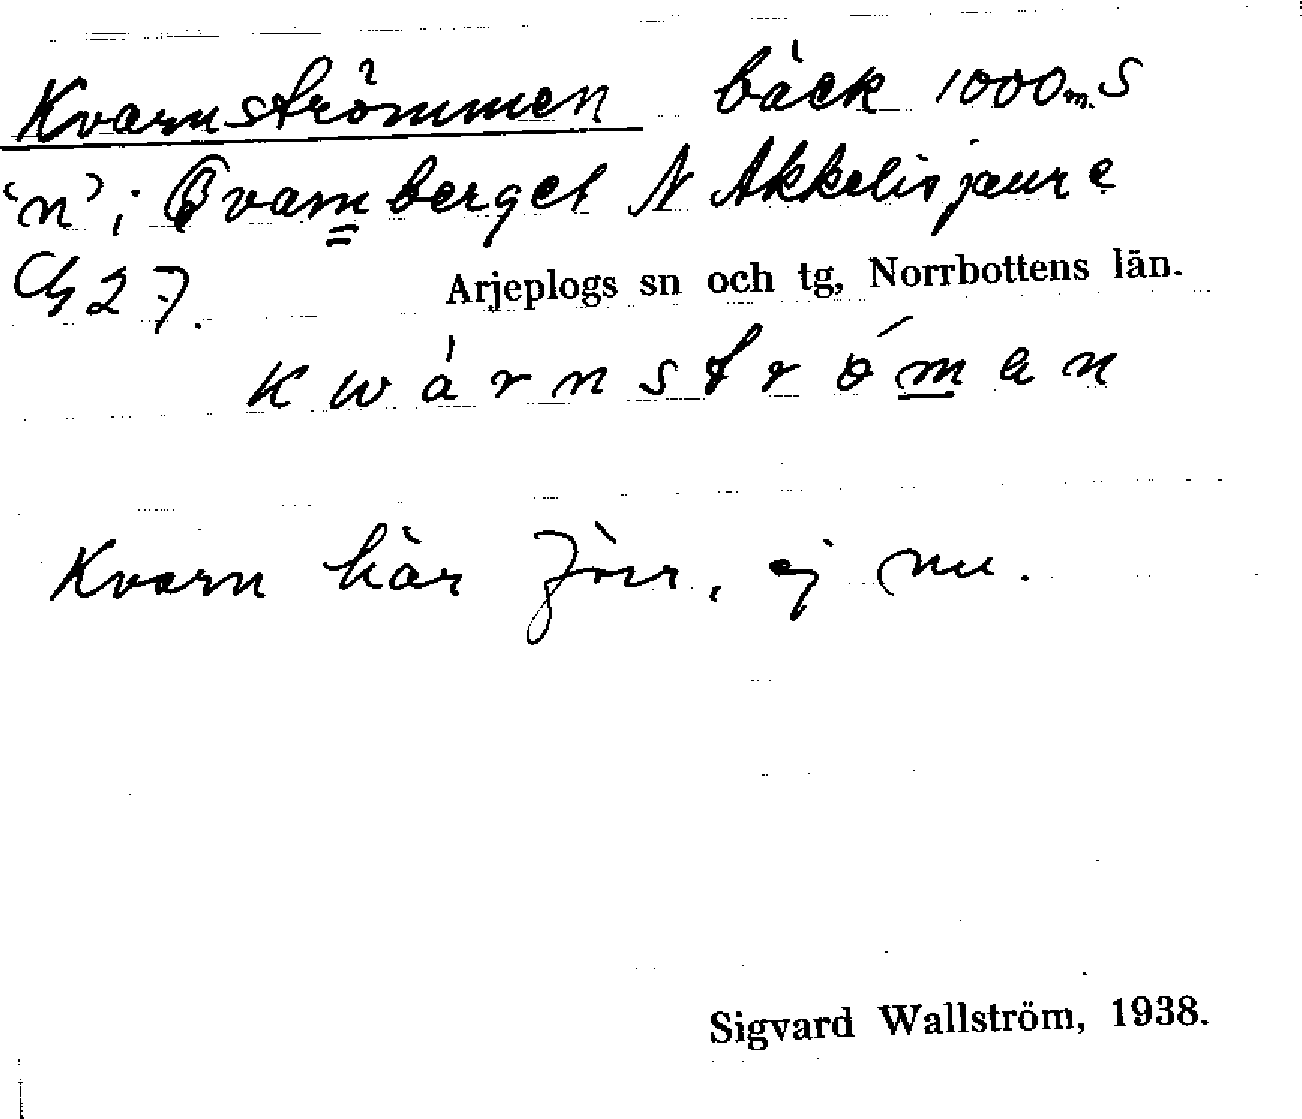 Kvarnströmmen bäck 1000 m. S
'n' i Qvarnberget N Akkelisjaure
G 27.
Arjeplogs sn och tg, Norrbottens län.
kwárnstróman
Kvarn här förr, ej nu.
Sigvard Wallström, 1938.